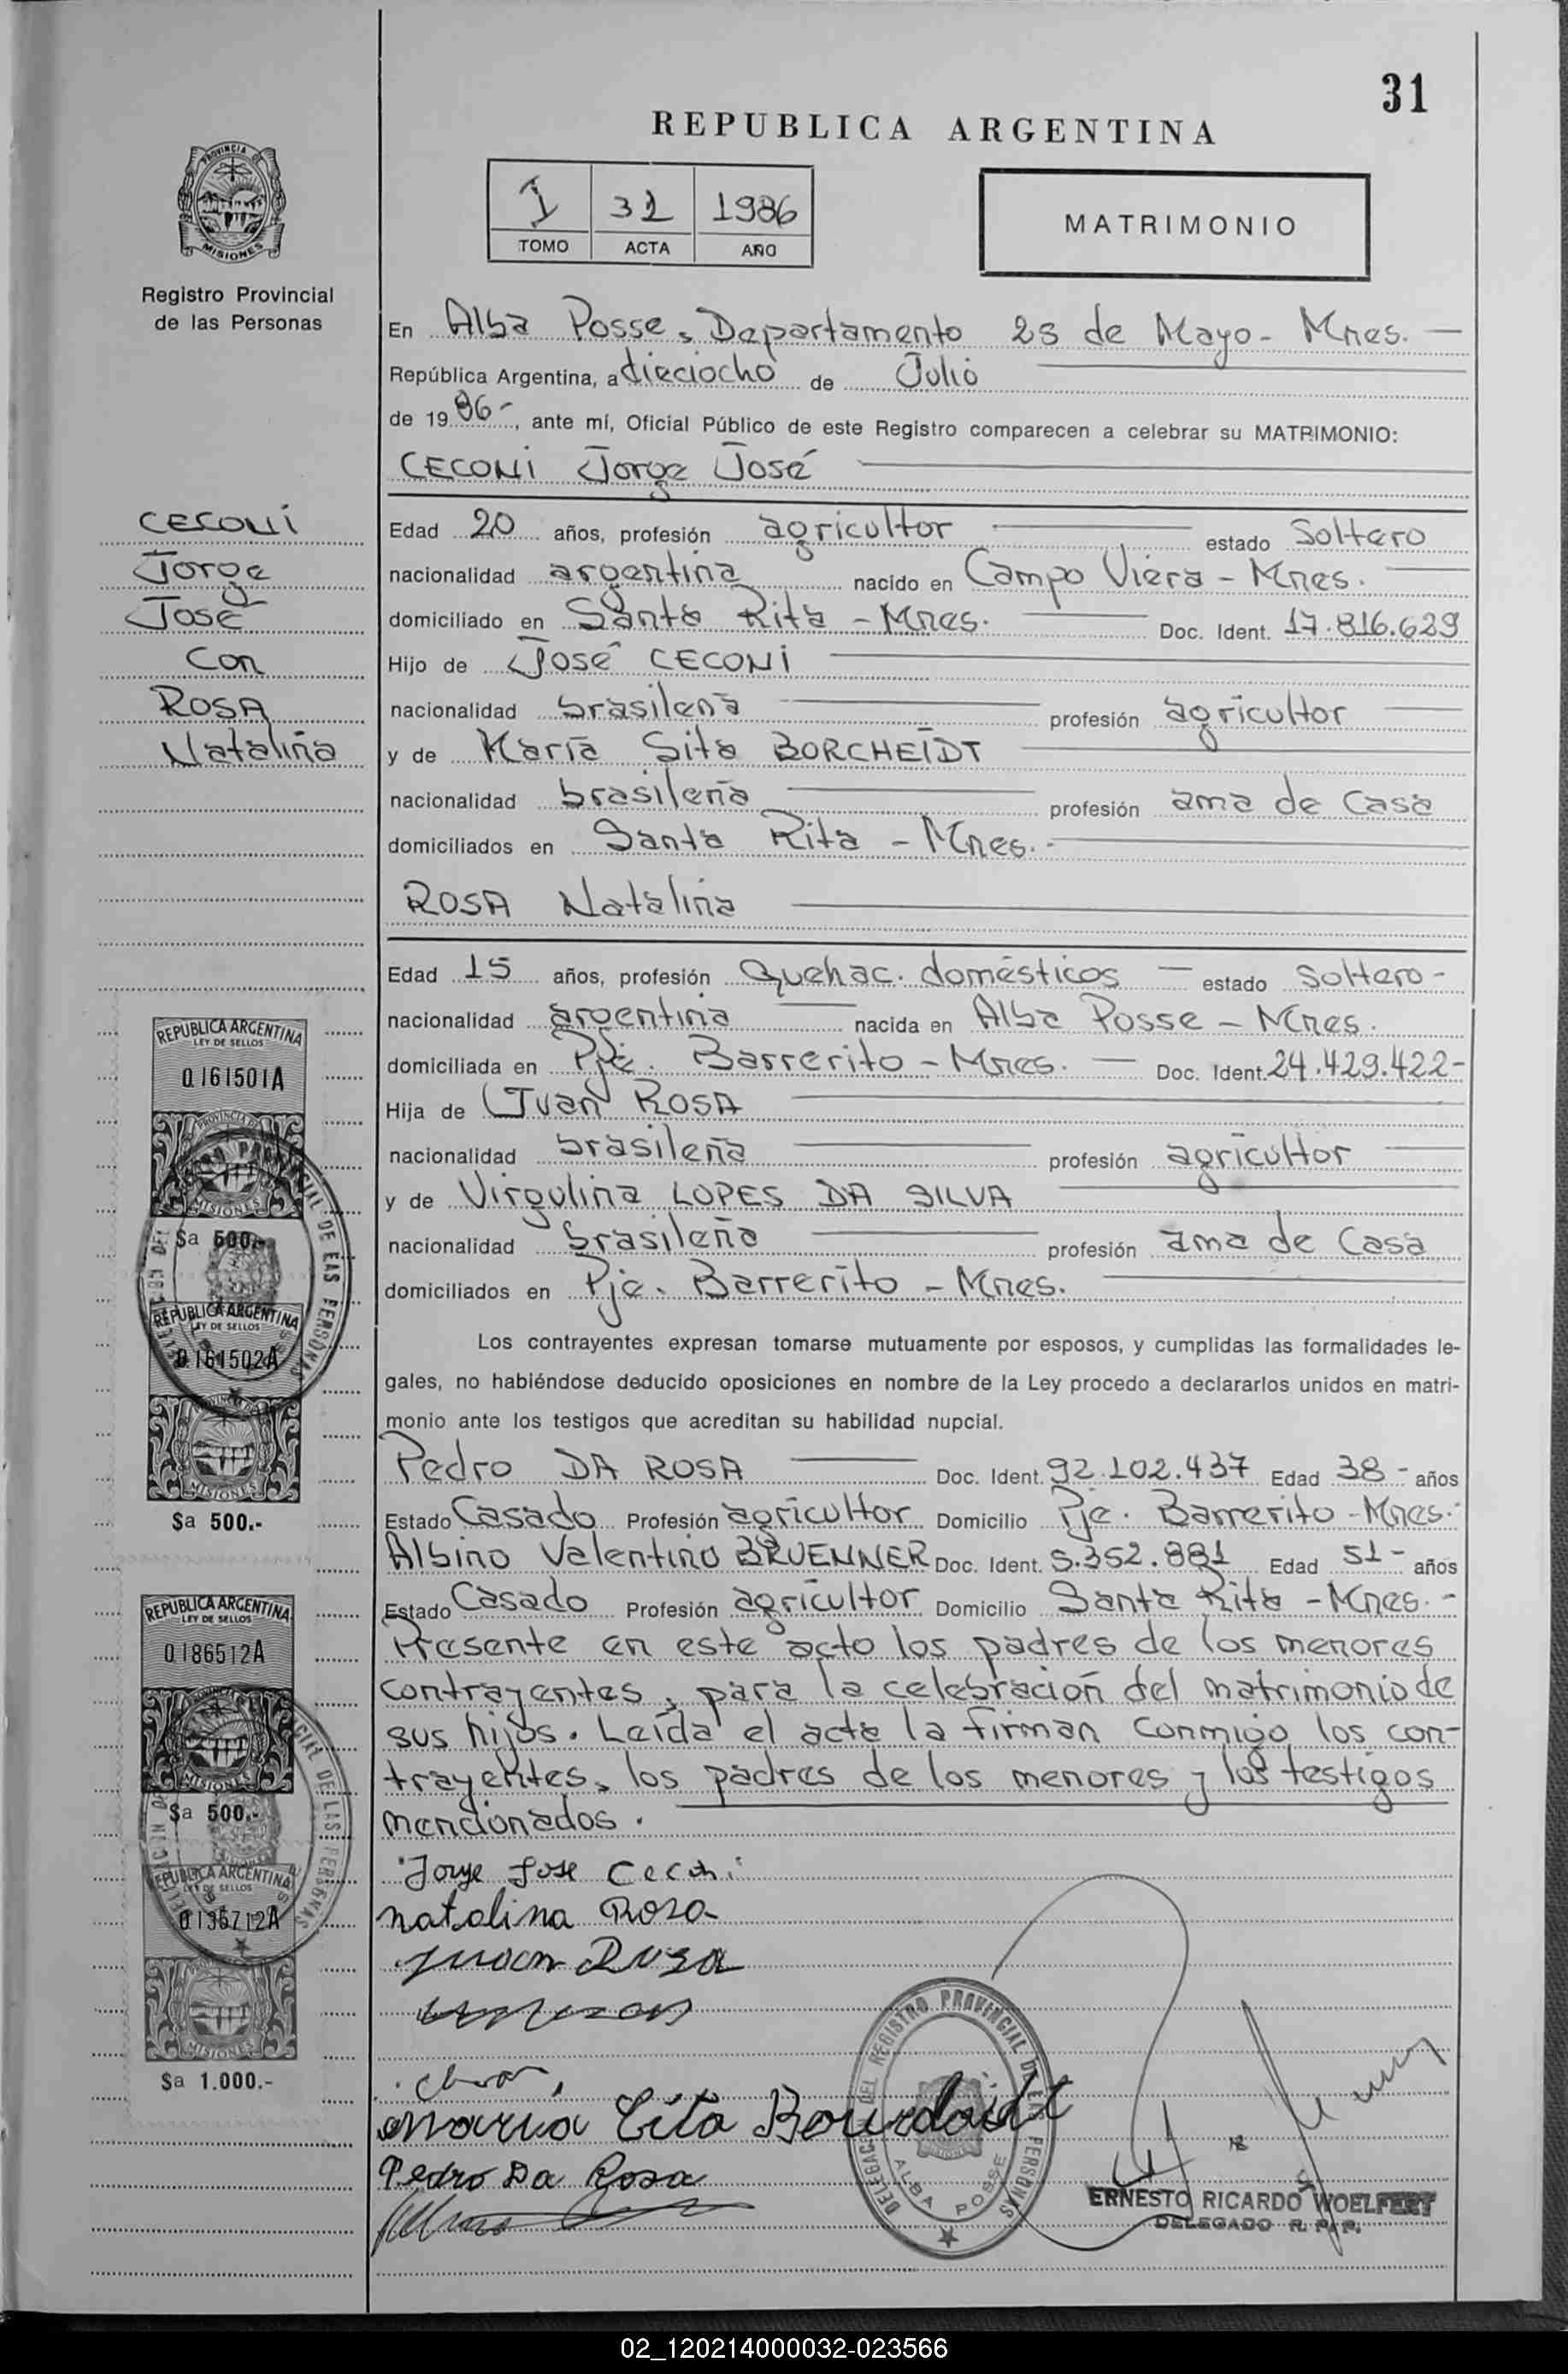 31
REPUBLICA ARGENTINA
I 31 1986
TOMO ACTA AÑO
MATRIMONIO
PROVINCIA DE
MISIONES
Registro Provincial
de las Personas
En Alba Posse, Departamento 25 de Mayo - Mnes.
República Argentina, a dieciocho de Julio
de 1986-, ante mí, Oficial Público de este Registro comparecen a celebrar su MATRIMONIO:
CECONI Jorge José
Edad 20 años, profesión agricultor estado Soltero
nacionalidad argentina nacido en Campo Viera - Mnes.
domiciliado en Santa Rita - Mnes. Doc. Ident. 17.816.629
Hijo de José CECONI
nacionalidad brasileña profesión agricultor
y de María Sita BORCHEIDT
nacionalidad brasileña profesión ama de Casa
domiciliados en Santa Rita - Mnes.-
ROSA Natalina
Edad 15 años, profesión Quehac. domésticos estado Soltero-
nacionalidad argentina nacida en Alba Posse - Mnes.
domiciliada en Pje. Barrerito - Mnes. Doc. Ident. 24.429.422-
Hija de Juan ROSA
nacionalidad brasileña profesión agricultor
y de Virgulina LOPES DA SILVA
nacionalidad brasileña profesión ama de Casa
domiciliados en Pje. Barrerito - Mnes.
Los contrayentes expresan tomarse mutuamente por esposos, y cumplidas las formalidades le-
gales, no habiéndose deducido oposiciones en nombre de la Ley procedo a declararlos unidos en matri-
monio ante los testigos que acreditan su habilidad nupcial.
Pedro DA ROSA Doc. Ident. 92.102.437 Edad 38- años
Estado Casado Profesión agricultor Domicilio Pje. Barrerito - Mnes.
Albino Valentino BRUENNER Doc. Ident. 5.352.881 Edad 51- años
Estado Casado Profesión agricultor Domicilio Santa Rita - Mnes.-
Presente en este acto los padres de los menores
contrayentes, para la celebración del matrimonio de
sus hijos. Leída el acta la firman conmigo los con-
trayentes, los padres de los menores y los testigos
mencionados.
Jorge Jose Ceconi
natalina Rosa
Juan Rosa
maria Cita Bourdaidt
Pedro Da Rosa
DELEGACION DEL REGISTRO PROVINCIAL DE LAS PERSONAS
ALBA POSSE
ERNESTO RICARDO WOELFERT
DELEGADO R. P. P.
CECONI
Jorge
José
Con
ROSA
Natalina
REPUBLICA ARGENTINA
LEY DE SELLOS
0.161501A
PROVINCIA DE
MISIONES
$a 500.-
REPUBLICA ARGENTINA
LEY DE SELLOS
0.161502A
MISIONES
$a 500.-
REPUBLICA ARGENTINA
LEY DE SELLOS
0.186512A
MISIONES
$a 500.-
REPUBLICA ARGENTINA
LEY DE SELLOS
0.136712A
MISIONES
$a 1.000.-
02_120214000032-023566